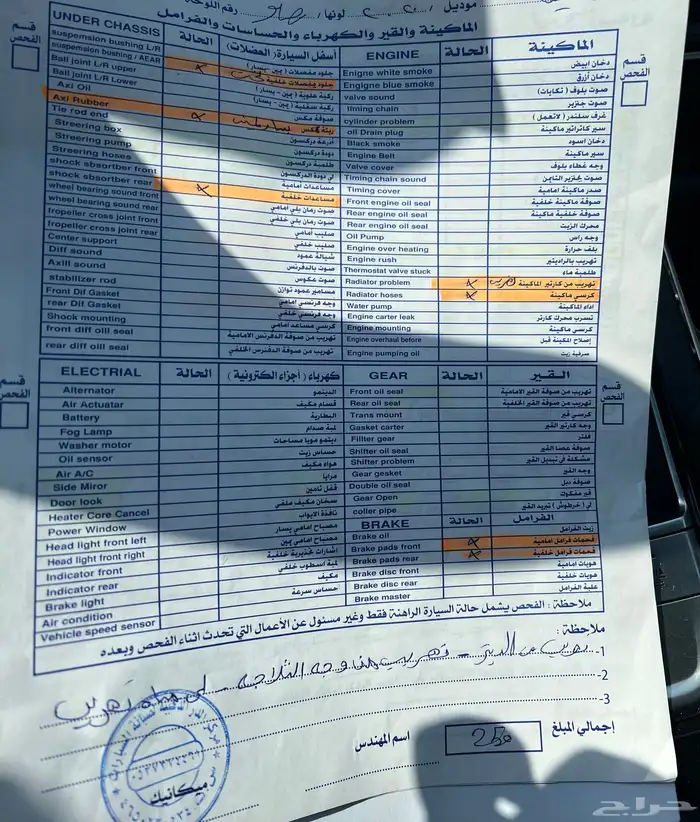 موديل لونها / رقم اللوحة
الماكينة والقير والكهرباء والحساسات والفرامل
قسم الفحص
UNDER CHASSIS الحالة أسفل السيارة (العضلات)
suspension bushing L/R
suspension bushing / AEAR
Ball joint L/R upper
Ball joint L/R Lower
Axi Oil
Axi Rubber
Tie rod end
Streering box
Streering pump
Streering hoses
shock sbsortber front
shock sbsortber rear
wheel bearing sound front
wheel bearing sound rear
fropeller cross joint front
fropeller cross joint rear
Center support
Diff sound
Axill sound
stabilizer rod
Front Dif Gasket
rear Dif Gasket
Shock mounting
front diff oill seal
rear diff oill seal
جلود مفصلات (يمين - يسار)
جلود مفصلات خلفية
ركبة علوية (يمين - يسار)
ركبة سفلية (يمين - يسار)
صوفة عكس
ربلة عكس
أذرعة دركسون
دودة دركسون
طلمبة دركسون
لي دودة الدركسون
مساعدات أمامية
مساعدات خلفية
صوت رمان بلي أمامي
صوت رمان بلي خلفي
صليب أمامي
صليب خلفي
شيالة عمود
صوت بالدفرنس
صوت عكوس
مسامير عمود توازن
وجه فرنسي أمامي
وجه فرنسي خلفي
كرسي مساعد أمامي
تهريب من صوفة الدفرنس الأمامية
تهريب من صوفة الدفرنس الخلفي
ENGINE الحالة الماكينة
Enigne white smoke دخان ابيض
Engigne blue smoke دخان أزرق
valve sound صوت بلوف (تكايات)
timing chain صوت جنزير
cylinder problem غرف سلندر (لاتعمل)
oil Drain plug سير كاتراتير ماكينة
Black smoke دخان اسود
Engine Belt سير ماكينة
Valve cover وجه غطاء بلوف
Timing chain sound صوت جنزير الثامن
Timing cover صدر ماكينة امامية
Front engine oil seal صوفة ماكينة خلفية
Rear engine oil seal صوفة خلفية ماكينة
Rear engine oil seal محرك الزيت
Oil Pump وجه راس
Engine over heating بلف حرارة
Engine rush تهريب بالراديتير
Thermostat valve stuck طلمبة ماء
Radiator problem تهريب من كارتير الماكينة
Radiator hoses كرسي ماكينة
Water pump اداء الماكينة
Engine carter leak تسرب محرك كارتر
Engine mounting كرسي ماكينة
Engine overhaul before إصلاح المكينة قبل
Engine pumping oil صرفية زيت
قسم الفحص
ELECTRIAL الحالة كهرباء (أجزاء الكترونية)
Alternator الدينمو
Air Actuator قسام مكيف
Battery البطارية
Fog Lamp لمبة صدام
Washer motor دينمو مويا مساحات
Oil sensor حساس زيت
Air A/C هواء مكيف
Side Miror مرايا
Door look قفل تامين
Heater Core Cancel سخان مكيف ملغي
Power Window نافذة الابواب
Head light front left مصباح امامي يسار
Head light front right مصباح امامي يمين
Indicator front اشارات تحذيرية خلفية
Indicator rear لمبة اسطوب خلفي
Brake light مكيف
Air condition حساس سرعة
Vehicle speed sensor
GEAR الحالة القير
Front oil seal تهريب من صوفة القير الامامية
Rear oil seal تهريب من صوفة القير الخلفية
Trans mount كرسي قير
Gasket carter وجه كارتير القير
Fillter gear فلتر
Shifter oil seal صوفة عصا القير
Shifter problem مشكلة في تبديل القير
Gear gesket وجه القير
Double oil seal صوفة دبل
Gear Open قير مفكوك
coller pipe لي (خرطوش) تبريد القير
BRAKE الحالة الفرامل
Brake oil زيت الفرامل
Brake pads front فحمات فرامل امامية
Brake pads rear فحمات فرامل خلفية
Brake disc front هوبات امامية
Brake disc rear هوبات خلفية
Brake master علبة الفرامل
قسم الفحص
ملاحظة : الفحص يشمل حالة السيارة الراهنة فقط وغير مسئول عن الأعمال التي تحدث اثناء الفحص وبعده
ملاحظة :
1-
2-
3-
إجمالي المبلغ 250 اسم المهندس
ميكانيك
حراج